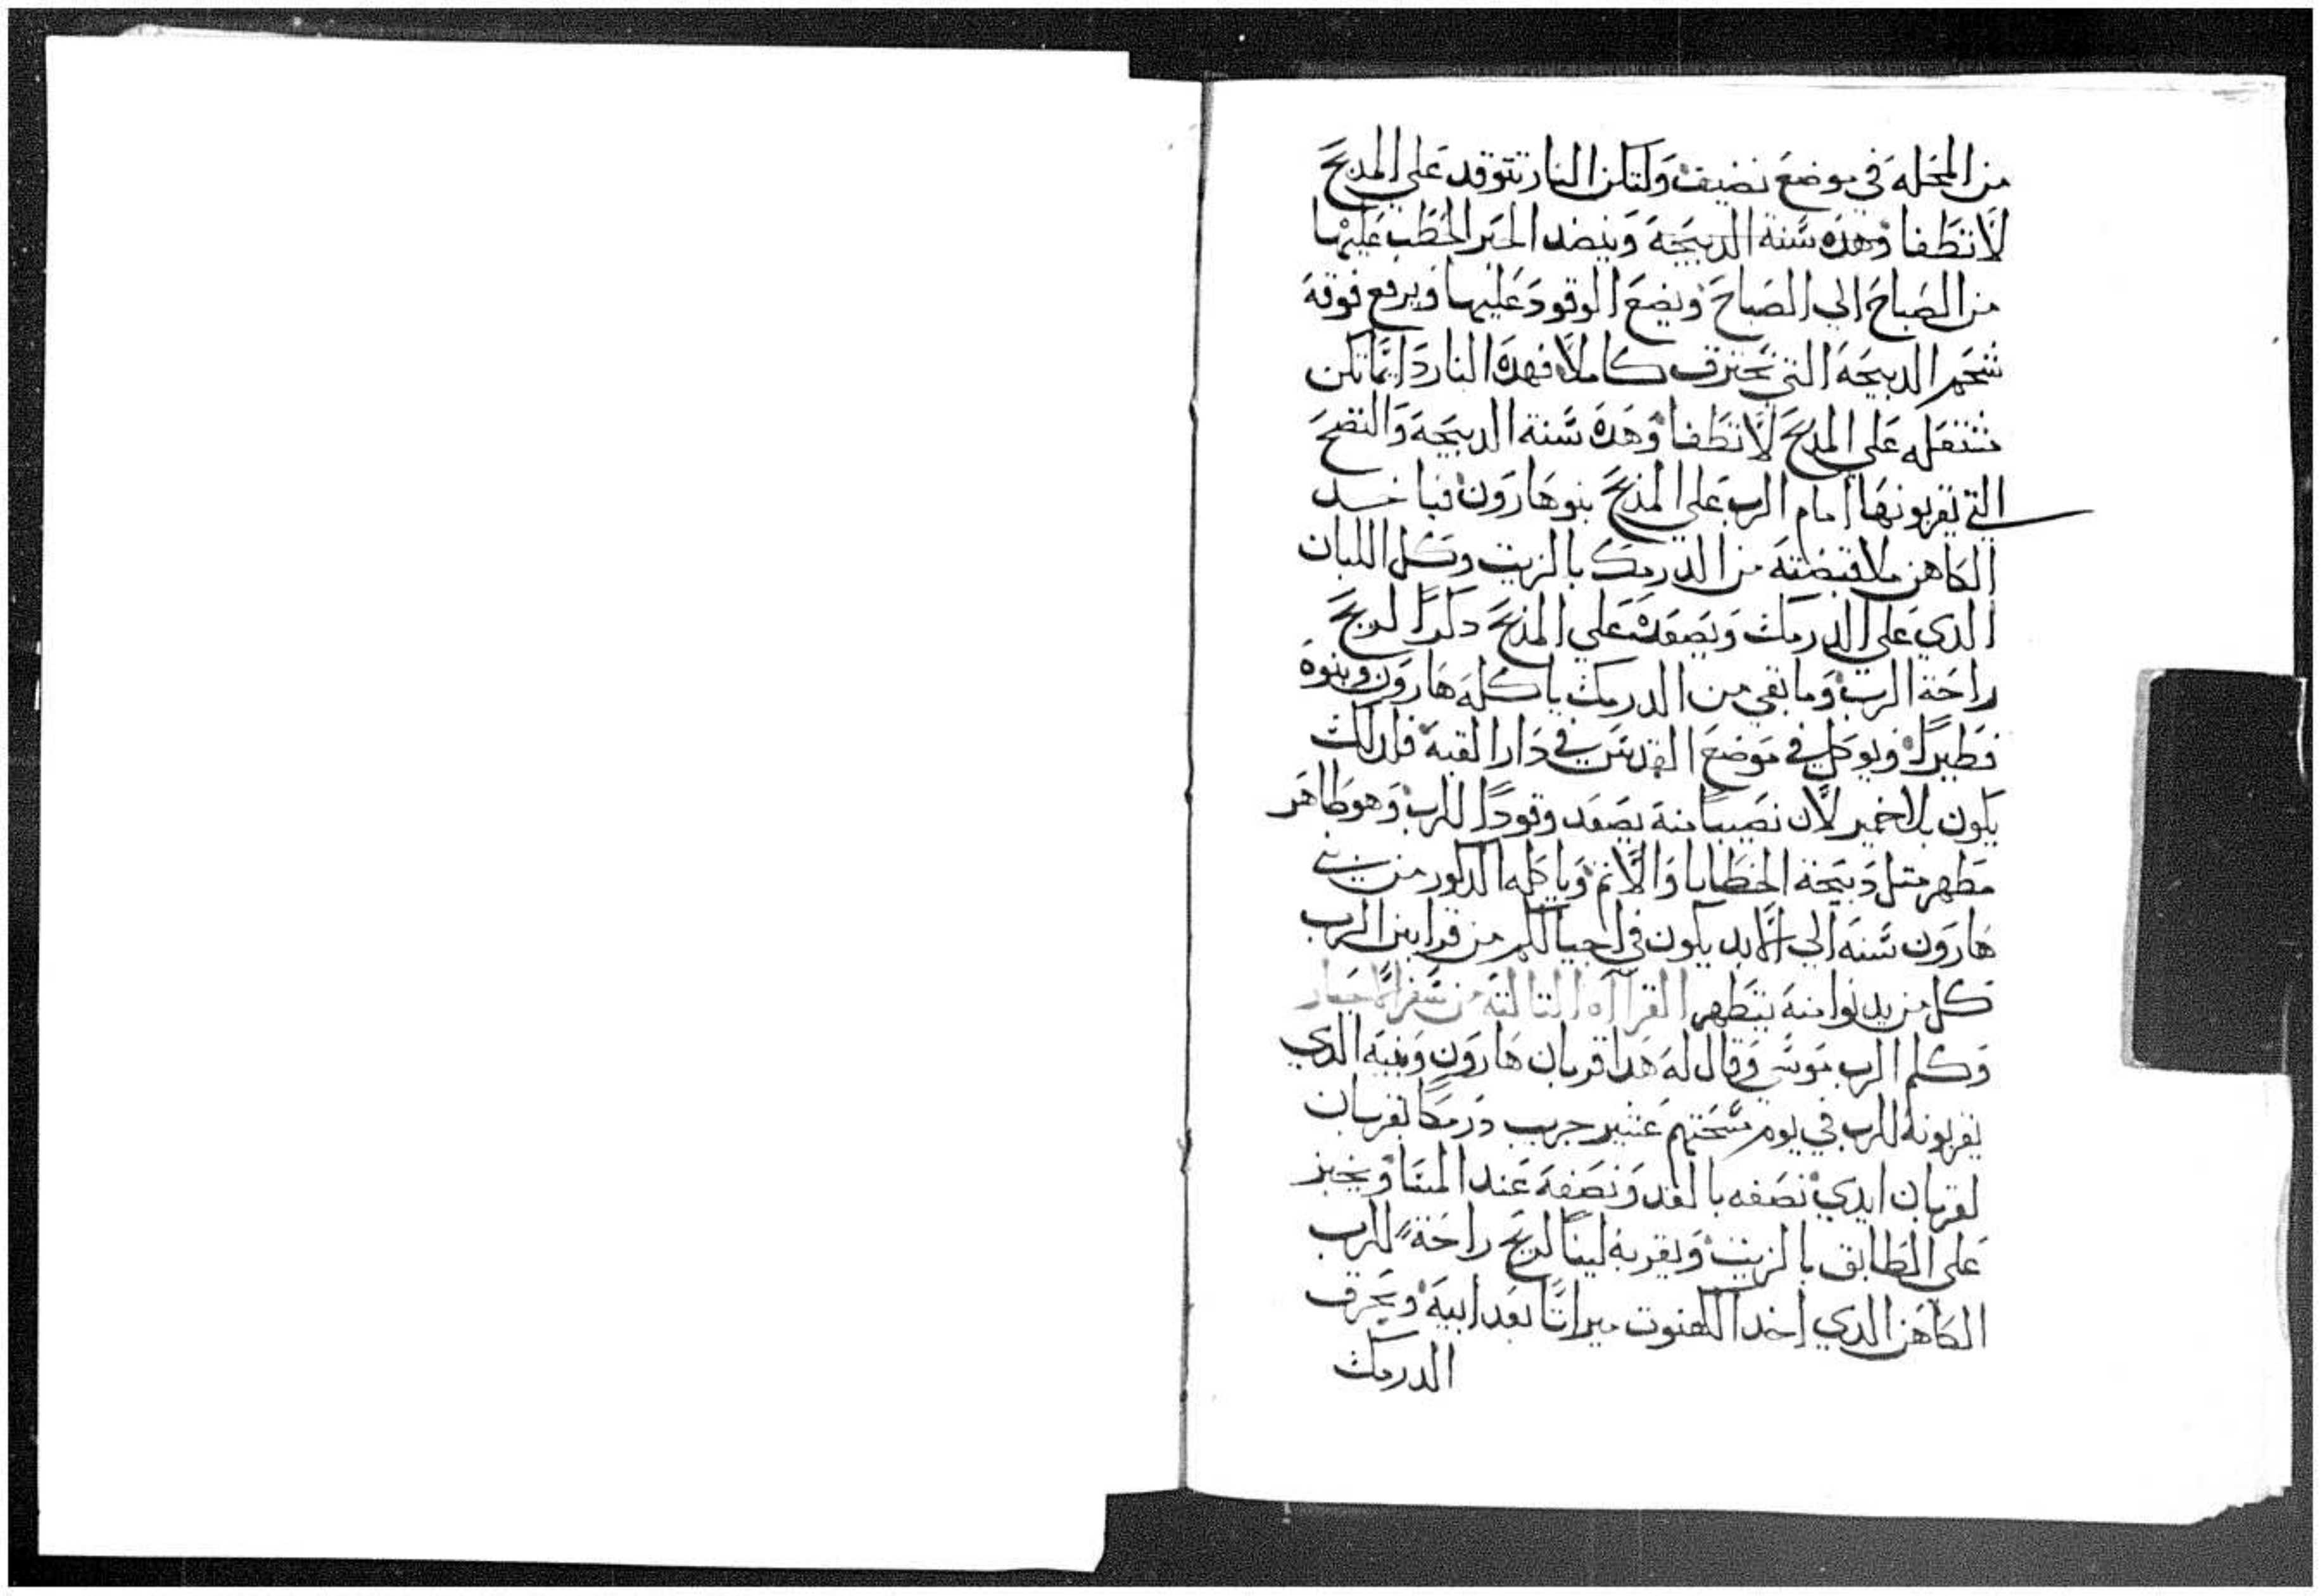 من المحله في موضع نضيف ولتكن النار تتوقد علي المدبح
لا تطفا وهده سنة الدبيحة وينضد الحبر الحطب عليها
من الصباح الي الصباح ويضع الوقود عليها ويرفع فوقه
شحم الدبيحة التي تحترق كاملا فهده النار دايما تكن
تشتعله علي المدبح لا تطفا وهده سنة الدبيحة والنضح
التي يقربونها امام الرب علي المذبح بنوهارون فياخد
الكاهن ملا قبضته من الدرمك بالزيت وكل اللبان
الدي علي الدرمك ويصعده علي المذبح دكرا لريح
راحة الرب وما بقي من الدرمك ياكله هارون وبنوه
فطيرا ويوكل في موضع القدس في دار القبة فان لك
يكون بلا خمير لان نصيبا منه يصعد وقودا للرب وهو طاهر
مطهر متل دبيحة الخطايا والاثم وياكله الدكور من بني
هارون سنه الي الابد يكون في احيالكم من قرابين الرب
كل من يدنوا منه يتطهر القراآه التالتة من سفر الاحبار
وكلم الرب موسي وقال له هدا قربان هارون وبنيه الدي
يقربونه للرب في يوم مسحتهم عشير جريب درمكا بقربان
لقربان ابدي نصفه بالغد ونصفه عند المسا ويخبز
علي الطابق بالزيت ويقربه لينا لريح راحة للرب
الكاهن الدي اخد الكهنوت ميراتا بعد ابيه ويحرق
الدرمك